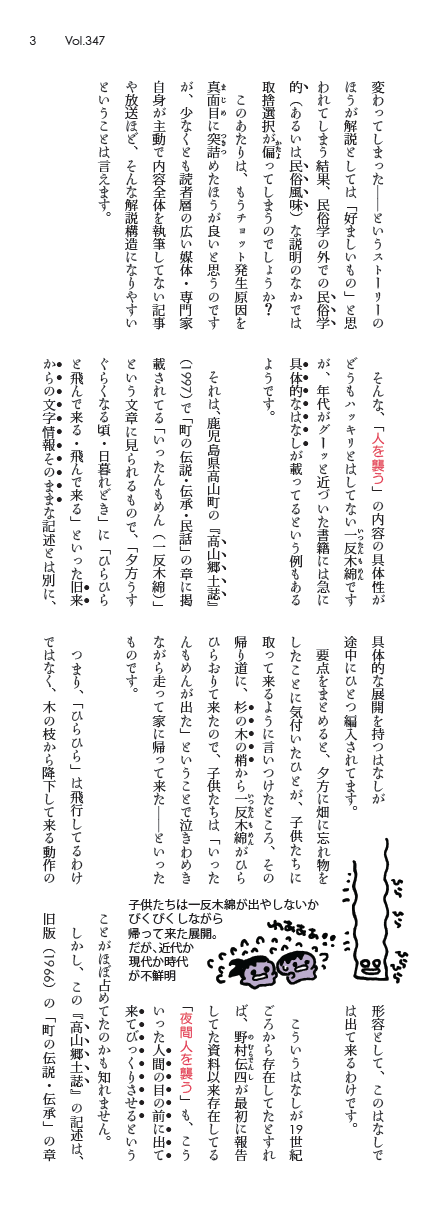 3 Vol.347
変わってしまった――というストーリーの
ほうが解説としては「好ましいもの」と思
われてしまう結果、民俗学の外での民俗学
的（あるいは民俗風味）な説明のなかでは
取捨選択が偏ってしまうのでしょうか？
このあたりは、もうチョット発生原因を
真面目に突詰めたほうが良いと思うのです
が、少なくとも読者層の広い媒体・専門家
自身が主動で内容全体を執筆してない記事
や放送ほど、そんな解説構造になりやすい
ということは言えます。
そんな、「人を襲う」の内容の具体性が
どうもハッキリとはしてない一反木綿です
が、年代がグーッと近づいた書籍には急に
具体的なはなしが載ってるという例もある
ようです。
それは、鹿児島県高山町の『高山郷土誌』
（1997）で「町の伝説・伝承・民話」の章に掲
載されてる「いったんもめん（一反木綿）」
という文章に見られるもので、「夕方うす
ぐらくなる頃・日暮れどき」に「ひらひら
と飛んで来る・飛んで来る」といった旧来
からの文字情報そのままな記述とは別に、
具体的な展開を持つはなしが
途中にひとつ編入されてます。
要点をまとめると、夕方に畑に忘れ物を
したことに気付いたひとが、子供たちに
取って来るように言いつけたところ、その
帰り道に、杉の木の梢から一反木綿がひら
ひらおりて来たので、子供たちは「いった
んもめんが出た」ということで泣きわめき
ながら走って家に帰って来た――といった
ものです。
つまり、「ひらひら」は飛行してるわけ
ではなく、木の枝から降下して来る動作の
形容として、このはなしで
は出て来るわけです。
こういうはなしが19世紀
ごろから存在してたとすれ
ば、野村伝四が最初に報告
してた資料以来存在してる
「夜間人を襲う」も、こう
いった人間の目の前に出て
来てびっくりさせるという
ことがほぼ占めてたのかも知れません。
しかし、この『高山郷土誌』の記述は、
旧版（1966）の「町の伝説・伝承」の章
子供たちは一反木綿が出やしないか
びくびくしながら
帰って来た展開。
だが、近代か
現代か時代
が不鮮明
わあぁぁぁ！！